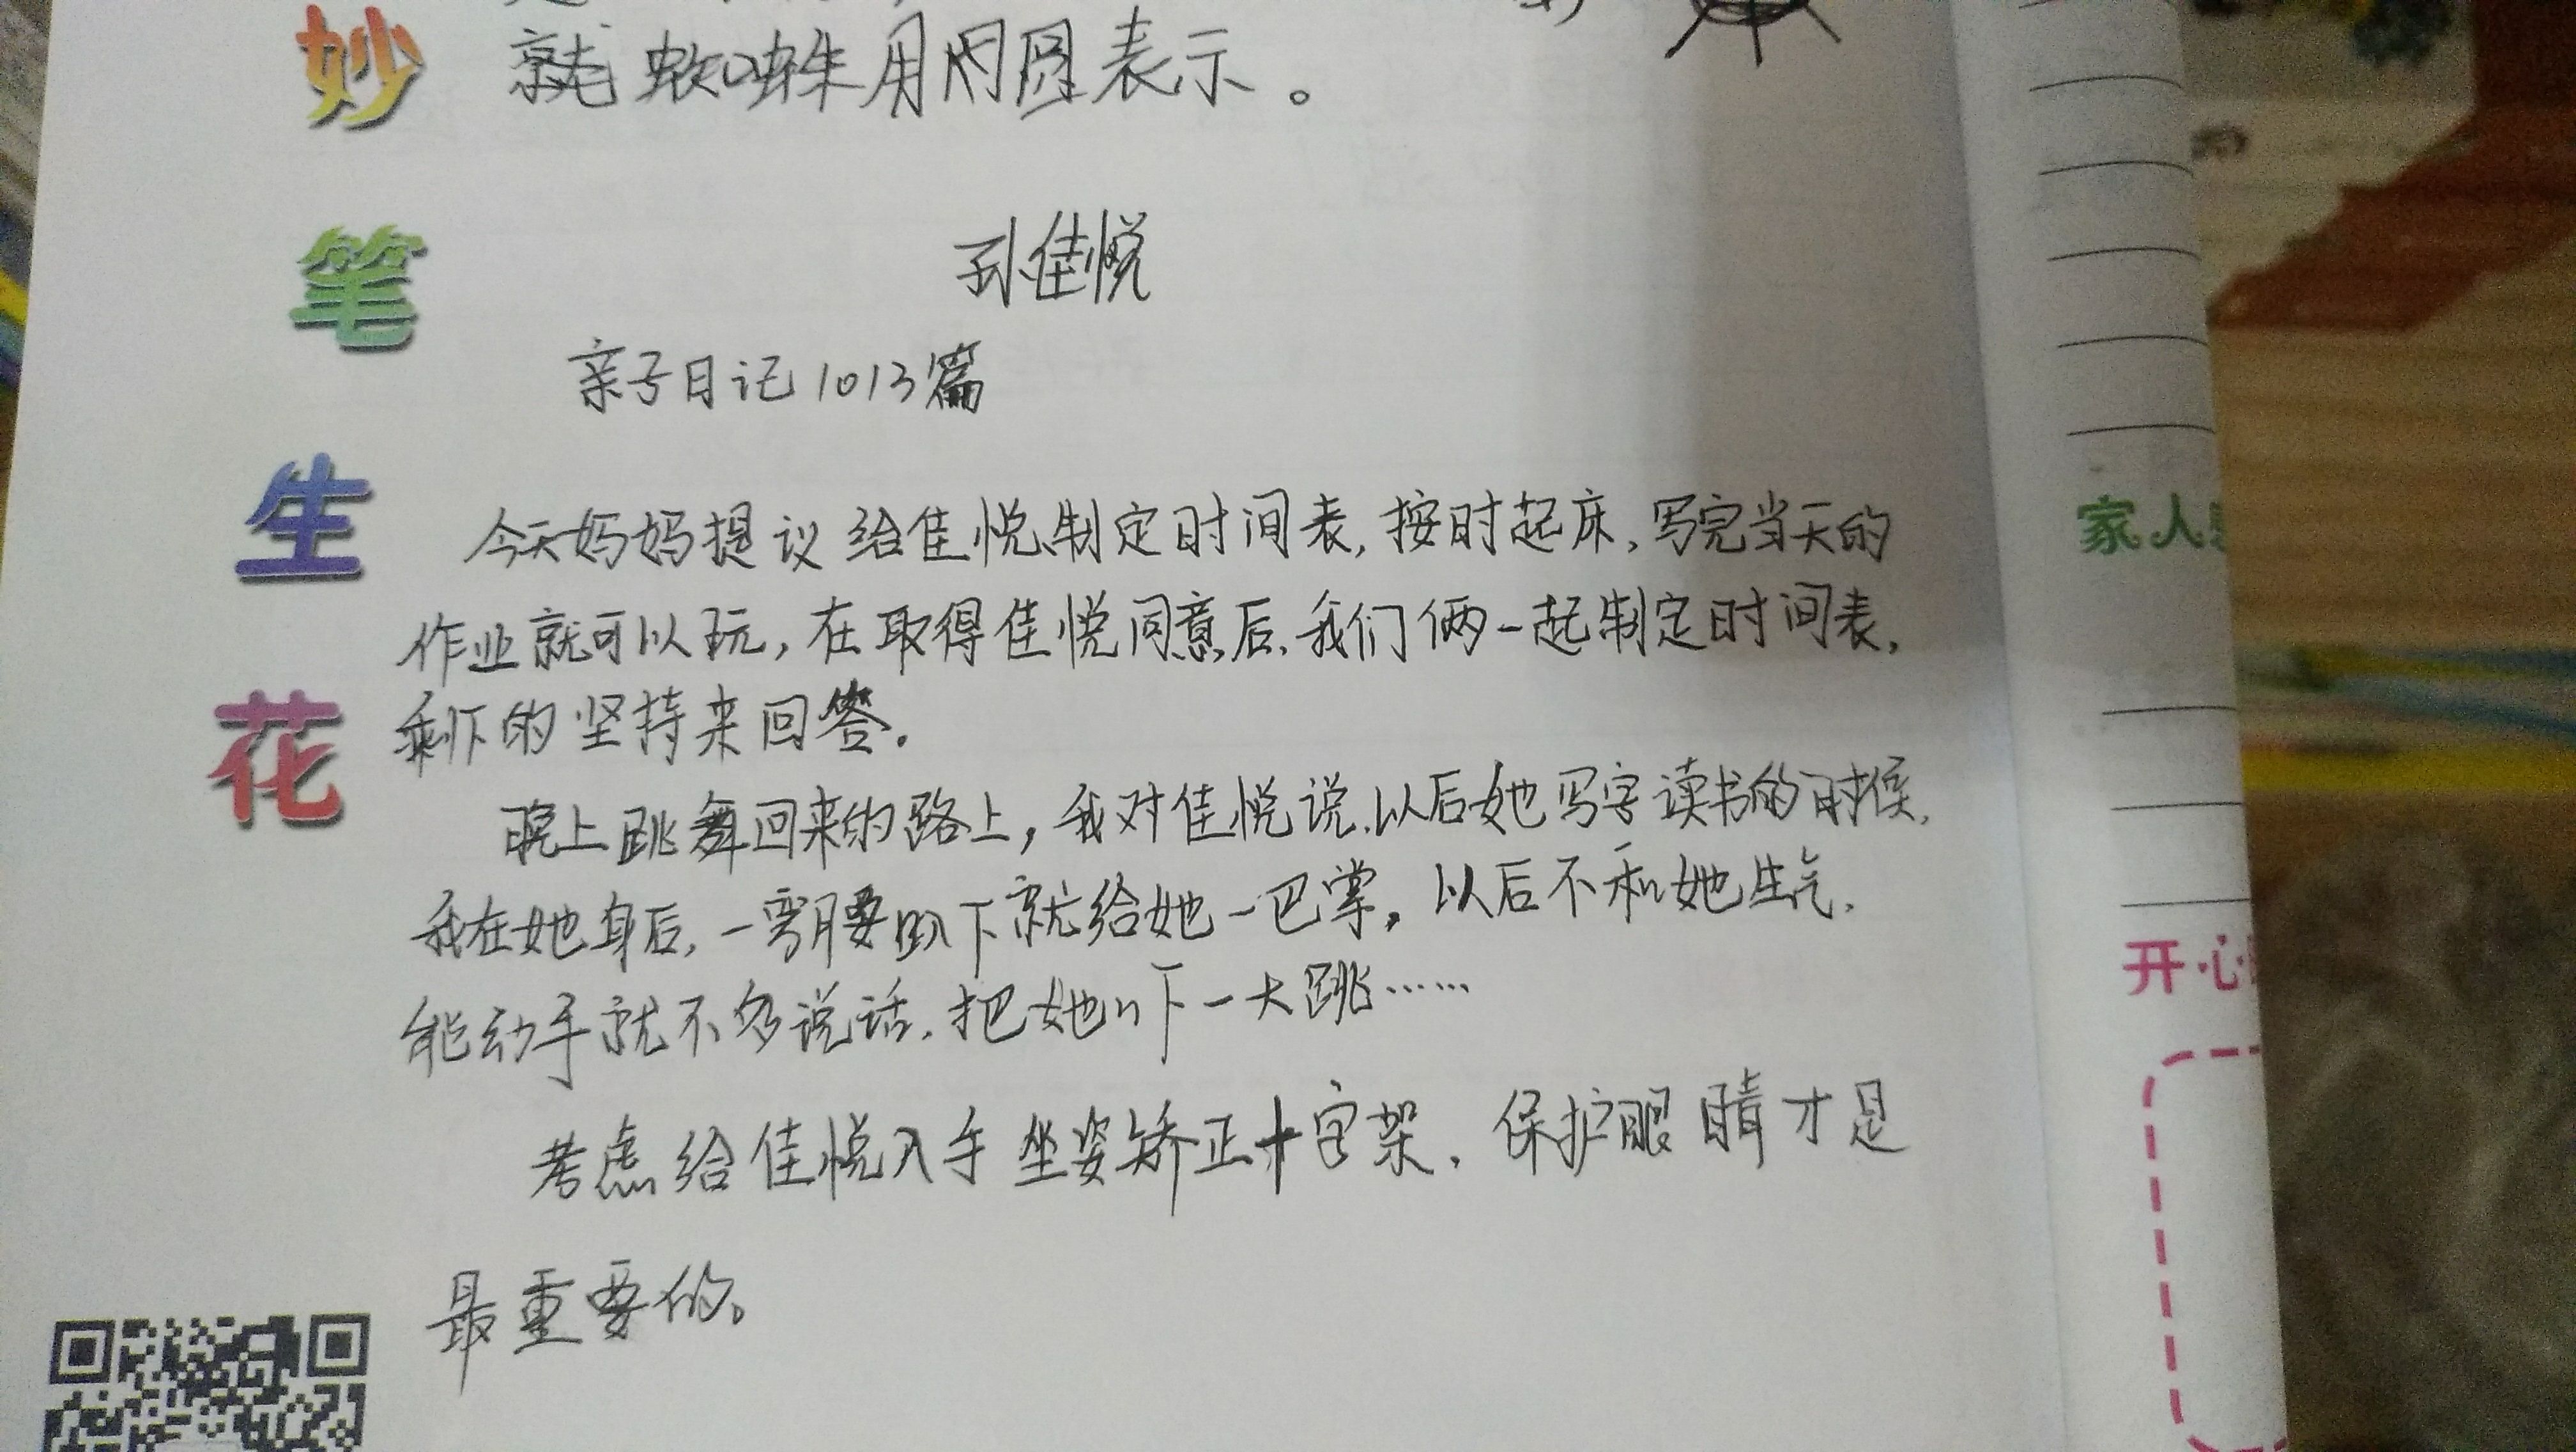 妙笔生花
就蜘蛛用网图表示。
孙佳悦
亲子日记1013篇
今天妈妈提议给佳悦制定时间表,按时起床,写完当天的
作业就可以玩,在取得佳悦同意后,我们俩一起制定时间表,
剩下的坚持来回答。
晚上跳舞回来的路上,我对佳悦说,以后她写字读书的时候,
我在她身后,一弯腰趴下就给她一巴掌,以后不和她生气,
能动手就不多说话,把她吓一大跳……
考虑给佳悦入手坐姿矫正十字架,保护眼睛才是
最重要的。
家人
开心